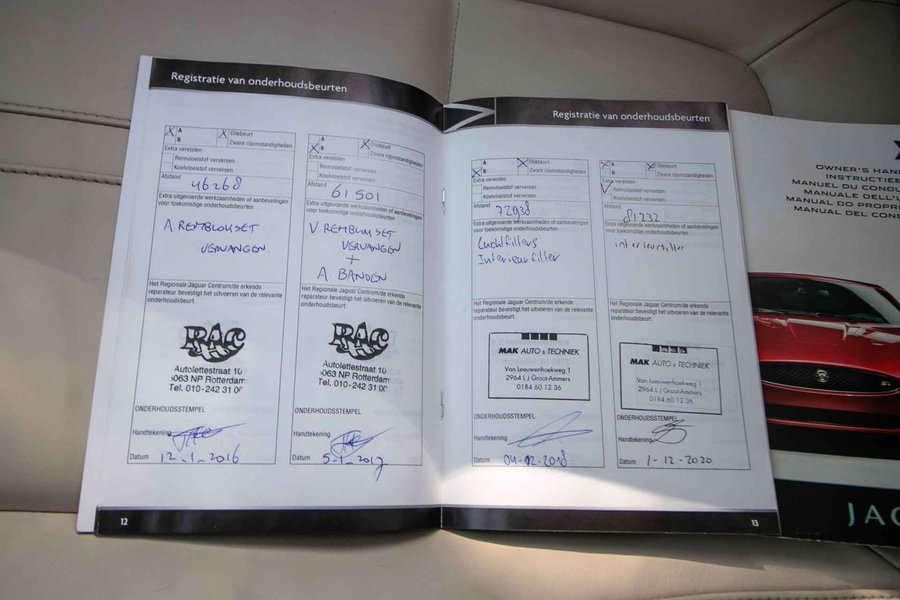 Registratie van onderhoudsbeurten
X A
X Oliebeurt
B
Zware rijomstandigheden
Extra vereisten
Remvloeistof verversen
Koelvloeistof verversen
Afstand
46268
Extra uitgevoerde werkzaamheden of aanbevelingen
voor toekomstige onderhoudsbeurten
A. REMBLOKSET
VERVANGEN
Het Regionale Jaguar Centrum/de erkende
reparateur bevestigt het uitvoeren van de relevante
onderhoudsbeurt.
RAC
Autolettestraat 10
3063 NP Rotterdam
Tel. 010-242 31 00
ONDERHOUDSSTEMPEL
Handtekening
Datum 12-1-2016
A
X Oliebeurt
X B
Zware rijomstandigheden
Extra vereisten
Remvloeistof verversen
Koelvloeistof verversen
Afstand
61501
Extra uitgevoerde werkzaamheden of aanbevelingen
voor toekomstige onderhoudsbeurten
V REMBLOKSET
VERVANGEN
+
A. BANDEN
Het Regionale Jaguar Centrum/de erkende
reparateur bevestigt het uitvoeren van de relevante
onderhoudsbeurt.
RAC
Autolettestraat 10
3063 NP Rotterdam
Tel. 010-242 31 00
ONDERHOUDSSTEMPEL
Handtekening
Datum 5-1-2017
12
Registratie van onderhoudsbeurten
A
X Oliebeurt
X B
Zware rijomstandigheden
Extra vereisten
Remvloeistof verversen
Koelvloeistof verversen
Afstand
72938
Extra uitgevoerde werkzaamheden of aanbevelingen
voor toekomstige onderhoudsbeurten
Luchtfilters
Interieurfilter
Het Regionale Jaguar Centrum/de erkende
reparateur bevestigt het uitvoeren van de relevante
onderhoudsbeurt.
MAK AUTO & TECHNIEK
Van Leeuwenhoekweg 1
2964 LJ Groot-Ammers
0184 60 12 36
ONDERHOUDSSTEMPEL
Handtekening
Datum 04-02-2018
X A
X Oliebeurt
B
Zware rijomstandigheden
Extra vereisten
Remvloeistof verversen
Koelvloeistof verversen
Afstand
81232
Extra uitgevoerde werkzaamheden of aanbevelingen
voor toekomstige onderhoudsbeurten
interieurfilter
Het Regionale Jaguar Centrum/de erkende
reparateur bevestigt het uitvoeren van de relevante
onderhoudsbeurt.
MAK AUTO & TECHNIEK
Van Leeuwenhoekweg 1
2964 LJ Groot-Ammers
0184 60 12 36
ONDERHOUDSSTEMPEL
Handtekening
Datum 1-12-2020
13
OWNER'S HAN
INSTRUCTIEB
MANUEL DU CONDU
MANUALE DELL'U
MANUAL DO PROPRI
MANUAL DEL CON
JAG